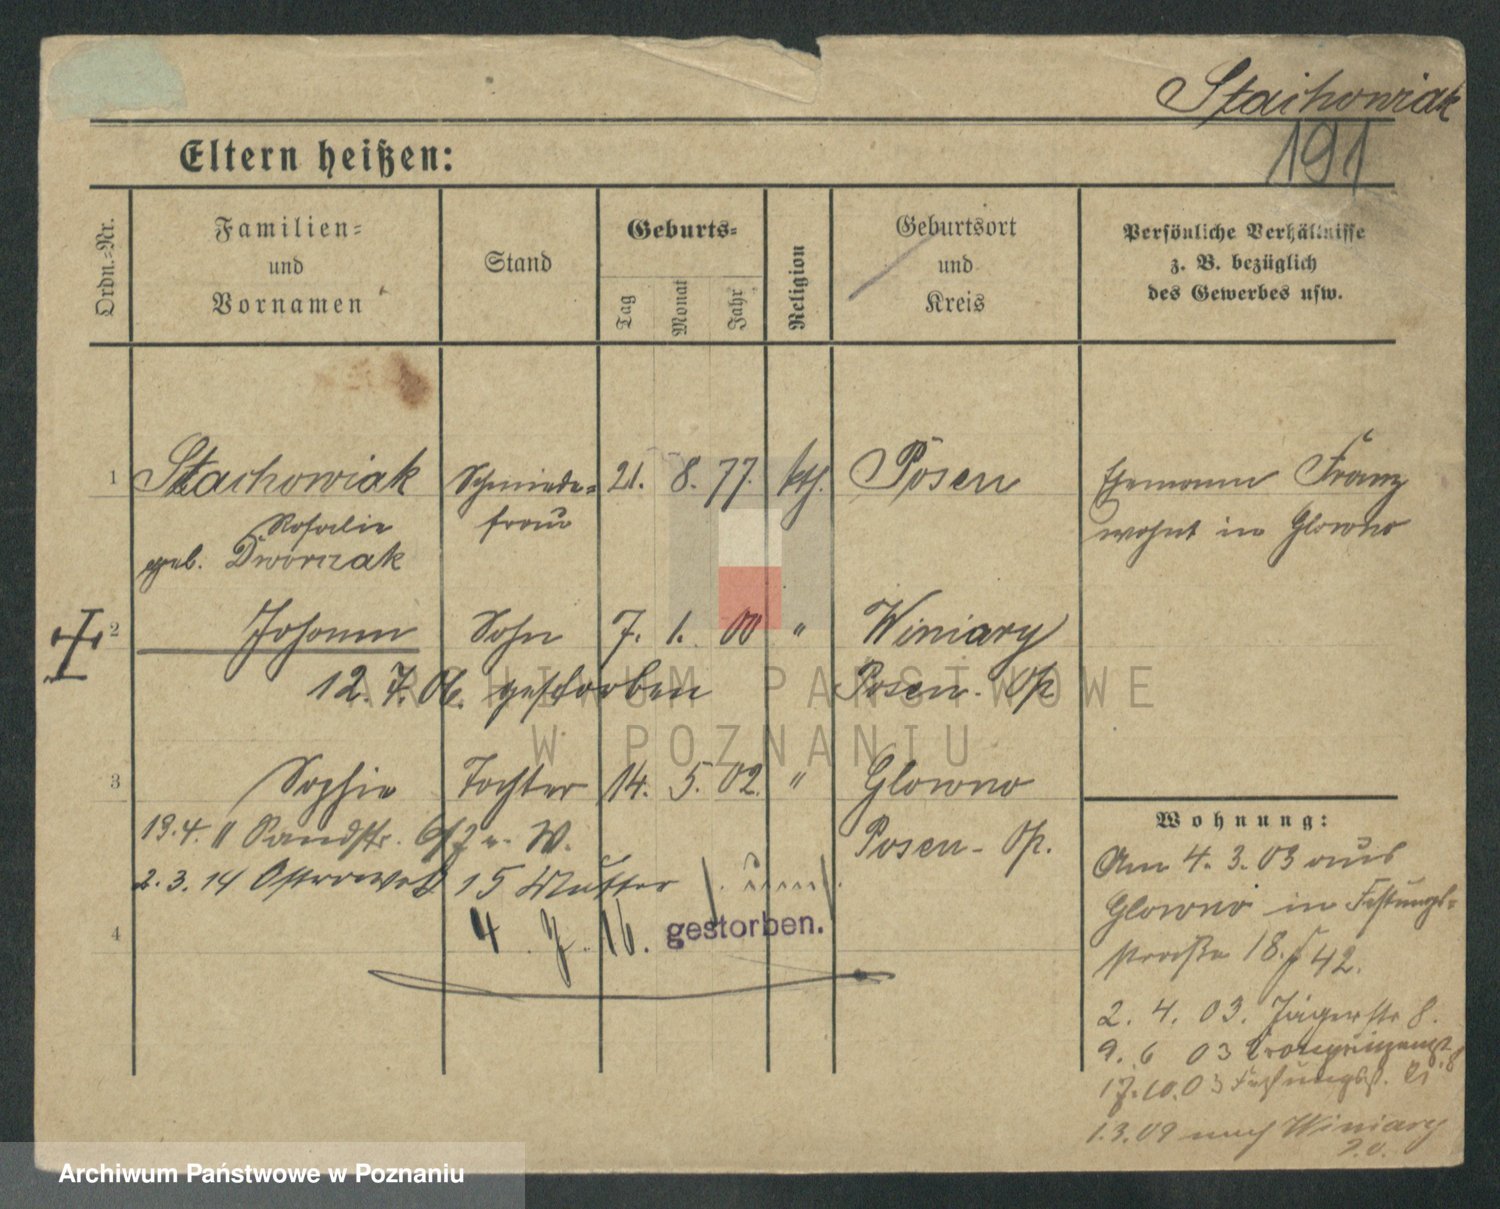 Stachowiak
191
Eltern heißen:
Ordn.-Nr.
Familien-
und
Vornamen
Stand
Geburts-
Tag
Monat
Jahr
Religion
Geburtsort
und
Kreis
Persönliche Verhältnisse
z. B. bezüglich
des Gewerbes usw.
1 Stachowiak Schmiede- 21. 8. 77. kth. Posen Ehemann Franz
Rosalie frau wohnt in Glowno
geb. Dworczak
2 Johann Sohn 7. 1. 00 " Winiary
12. 7. 06. gestorben Posen-Op
3 Sophie Tochter 14. 5. 02. " Glowno
19.4. 11 Sandstr. W. Posen-Op.
2.3.14 15 Mutter
4 16. gestorben.
Wohnung:
Am 4. 3. 03 aus
Glowno in Festungs-
straße 18. 42.
2. 4. 03. Jägerstr 8.
9. 6 03 Kronprinzenst. 8
17.10.03 Festungsst.
1.3.09 nach Winiary
ARCHIWUM PAŃSTWOWE
W POZNANIU
Archiwum Państwowe w Poznaniu